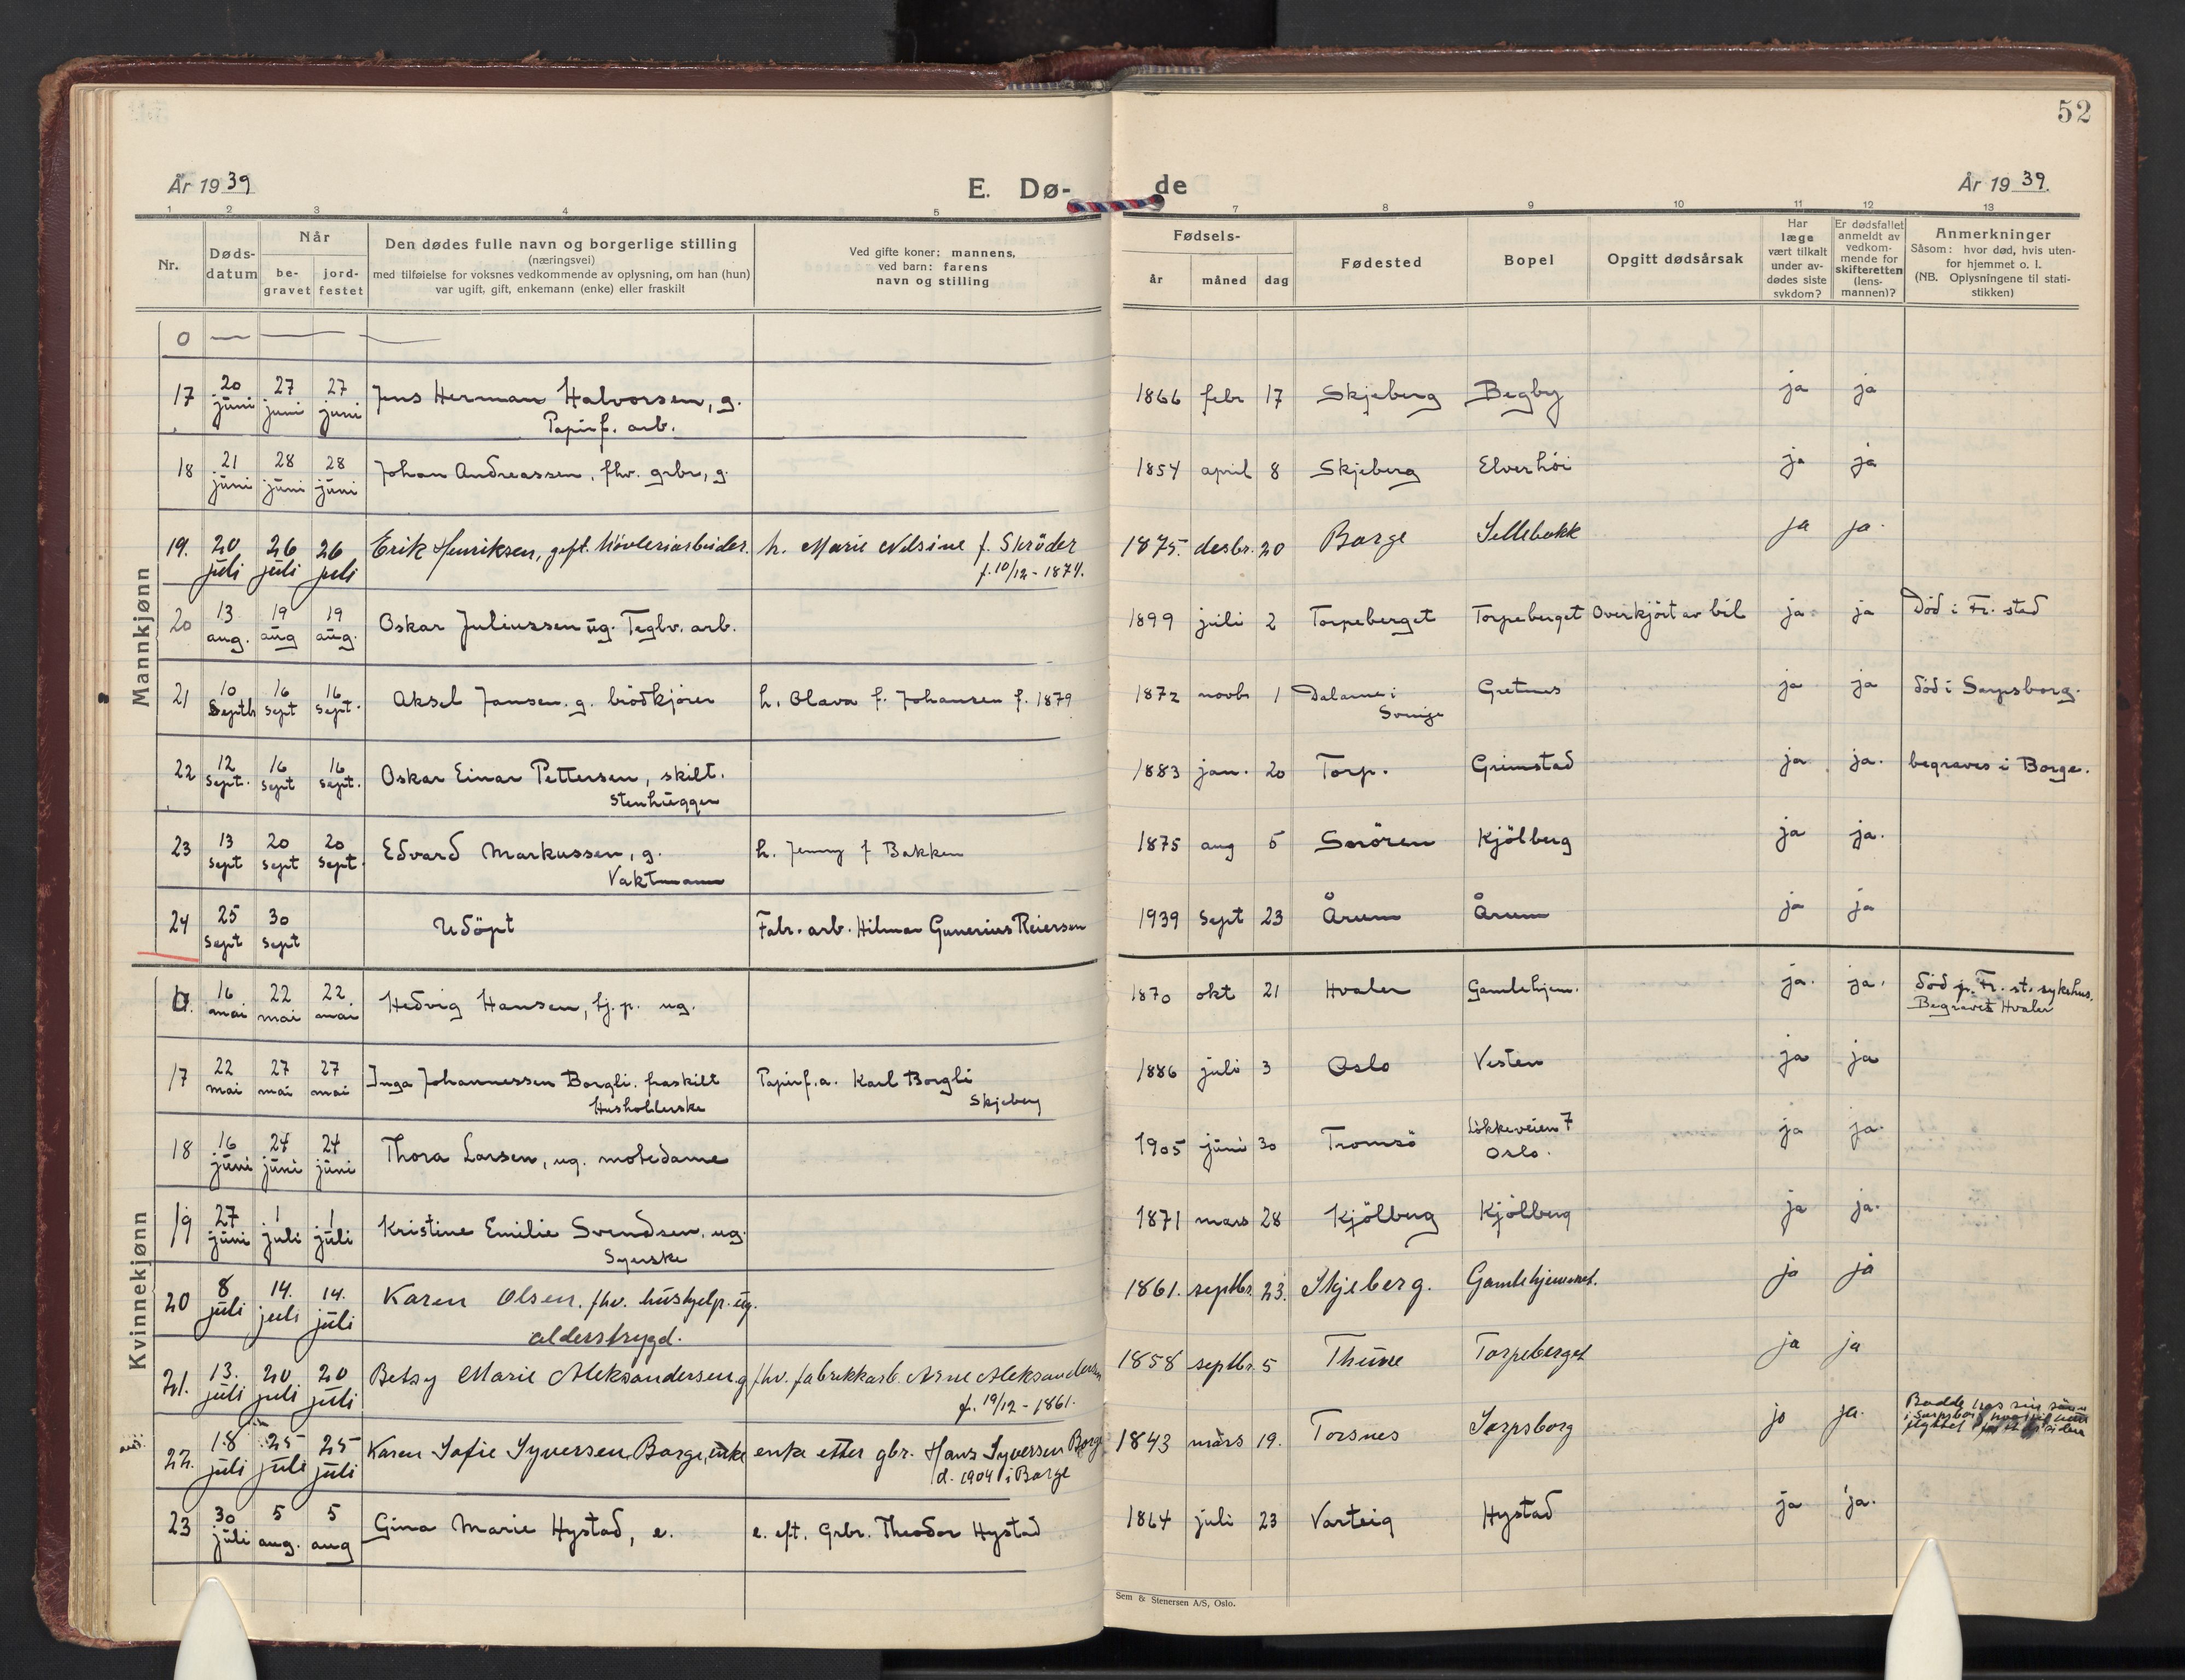 52
År 1939 E. Dø- de År 1939.
1 2 3 4 5 7 8 9 10 11 12 13
Nr. Døds-datum Når be-gravet jord-festet
Den dødes fulle navn og borgerlige stilling
(næringsvei)
med tilføielse for voksnes vedkommende av oplysning, om han (hun)
var ugift, gift, enkemann (enke) eller fraskilt
Ved gifte koner: mannens,
ved barn: farens
navn og stilling
Fødsels- år måned dag
Fødested
Bopel
Opgitt dødsårsak
Har læge vært tilkalt under av-dødes siste sykdom?
Er dødsfallet anmeldt av vedkom-mende for skifteretten (lens-mannen)?
Anmerkninger
Såsom: hvor død, hvis uten-
for hjemmet o. l.
(NB. Oplysningene til stati-
stikken)
Mannkjønn
0 —
17 20 juni 27 juni 27 juni Jens Herman Halvorsen, g. Papirf. arb. 1866 febr 17 Skjeberg Begby ja ja
18 21 juni 28 juni 28 juni Johan Andreassen, fhv. grbr, g. 1854 april 8 Skjeberg Elverhöi ja ja
19. 20 juli 26 juli 26 juli Erik Henriksen, gift. Hövleriarbeider. h. Marie Nilsine f. Skröder f. 10/12 - 1874. 1875. desbr. 20 Borge Sellebakk ja ja.
20 13 aug. 19 aug 19 aug. Oskar Juliussen ug. Teglv. arb. 1899 juli 2 Torpeberget Torpeberget Overkjört av bil ja ja Död i Fr. stad
21 10 Septb 16 sept 16 sept. Aksel Jansen. g. brödkjörer h. Olava f. Johansen f. 1879 1872 novbr 1 Dalarne i Sverige Gretnes ja ja död i Sarpsborg.
22 12 sept. 16 sept 16 sept. Oskar Einar Pettersen, skilt. stenhugger 1883 jan. 20 Torp. Grimstad ja ja. begraves i Borge.
23 13 sept 20 sept 20 sept. Edvard Markussen, g. Vaktmann h. Jenny f Bakken 1875 aug 5 Snören Kjölberg ja ja.
24 25 sept 30 sept Udöpt Fabr. arb. Hilmar Gunerius Reiersen 1939 Sept 23 Årum Årum ja ja
Kvinnekjønn
0. 16 mai 22 mai 22 mai Hedvig Hansen, tj. p. ug. 1870 okt 21 Hvaler Gamlehjem. ja. ja. död p. Fr. st. sykehus. Begraves Hvaler
17 22 mai 27 mai 27 mai Inga Johannessen Borgli. fraskilt Husholderske Papirf. a. Karl Borgli Skjeberg 1886 juli 3 Oslo Vesten ja ja
18 16 juni 24 juni 24 juni Thora Larsen, ug. motedame 1905 juni 30 Tromsö Lökkeveien 7 Oslo. ja ja.
19 27 juni 1 juli 1 juli Kristine Emilie Svendsen, ug. Syerske 1871 mars 28 Kjölberg Kjölberg ja ja.
20 8 juli 14. juli 14. juli Karen Olsen. fhv. hushjelp. ug. alderstrygd. 1861. septbr. 23. Skjeberg. Gamlehjemmet. ja ja
21. 13. juli 20 juli 20 juli Betsy Marie Aleksandersen. g fhv. fabrikkarb. Arne Aleksandersen f. 19/12 - 1861. 1858 septbr. 5 Thune Torpeberget ja ja
22. 18 juli 25 juli 25 juli Karen Sofie Syversen Borge, enke enke etter gbr. Hans Syversen Borge d. 1904 i Borge 1843 mars 19. Torsnes Sarpsborg ja ja. Bodde hos sin sönn i Sarpsborg
23 30 juli 5 aug. 5 aug Gina Marie Hystad, e. e. eft. Grbr. Theodor Hystad 1864 juli 23 Varteig Hystad ja ja.
Sem & Stenersen A/S, Oslo.